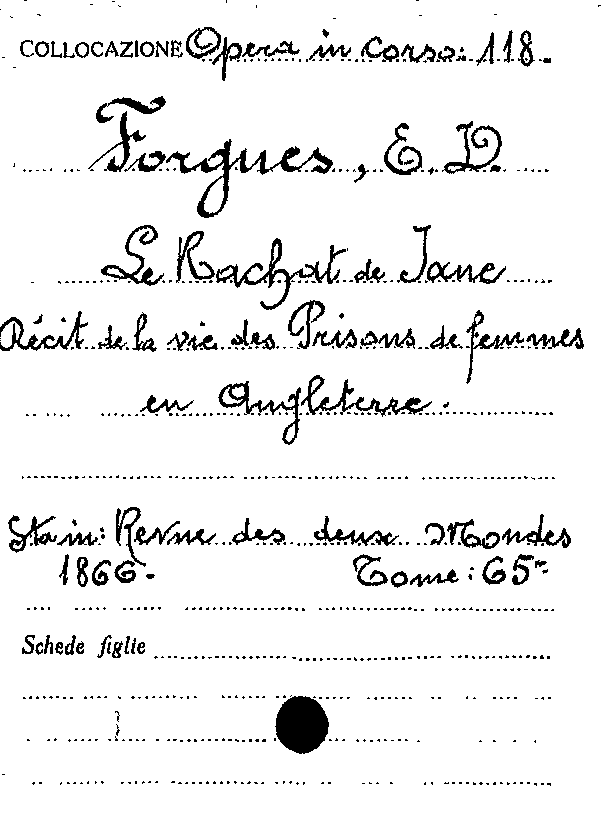 COLLOCAZIONE Opera in corso: 118.
Forgues, E. D.
Le Rachat de Jane
Récit de la vie des Prisons de femmes
en Angleterre.
Sta in: Revue des deux Mondes
1866. Tome: 65
Schede figlie